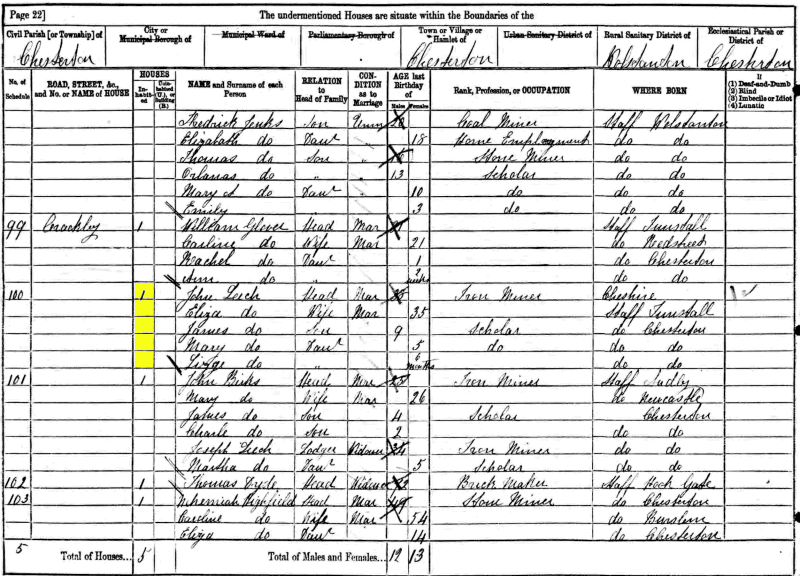 Page 22] The undermentioned Houses are situate within the Boundaries of the
Civil Parish [or Township] of Chesterton
City or Municipal Borough of
Municipal Ward of
Parliamentary Borough of
Town or Village or Hamlet of Chesterton
Urban Sanitary District of
Rural Sanitary District of Wolstanton
Ecclesiastical Parish or District of Chesterton
No. of Schedule
ROAD, STREET, &c., and No. or NAME of HOUSE
HOUSES
In-habited
Unin-habited (U.), or Building (B.)
NAME and Surname of each Person
RELATION to Head of Family
CON-DITION as to Marriage
AGE last Birthday of
Males Females
Rank, Profession, or OCCUPATION
WHERE BORN
If
(1) Deaf-and-Dumb
(2) Blind
(3) Imbecile or Idiot
(4) Lunatic
Fredrick Jenks Son Coal Miner Staff Wolstanton
Elizabeth do Daur " 18 Home Employment do do
Thomas do Son " Stone Miner do do
Orlanas do " 13 Scholar do do
Mary A do Daur 10 do do do
Emily 3 do do do
99 Crackley 1 William Glover Head Mar Staff Tunstall
Carline do Wife Mar 21 do
Rachel do Daur 1 do Chesterton
Ann do " 2 weeks do do
100 1 John Leech Head Mar 35 Iron Miner Cheshire
Eliza do Wife Mar 35 Staff Tunstall
James do Son 9 Scholar do Chesterton
Mary do Daur 5 do do do
Lizge do " 6 months do do
101 1 John Birks Head Mar Iron Miner Staff Audley
Mary do Wife Mar 26 do Newcastle
James do Son 4 Scholar Chesterton
Charls do Son 2 do do
Joseph Leech Lodger Widower 34 Iron Miner do do
Martha do Daur 5 Scholar do do
102 1 Thomas Head Widower Brick Maker Staff Gate
103 1 Nehemiah Highfield Head Mar 49 Stone Miner do Chesterton
Caroline do Wife Mar 54 do Burslem
Eliza do Daur 14 do Chesterton
5 Total of Houses... 5 Total of Males and Females... 12 13